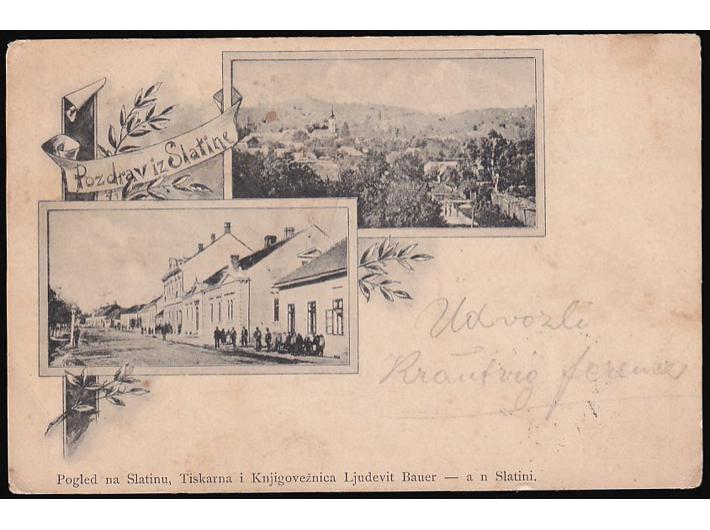 Pozdrav iz Slatine
Üdvözli
Krautvig Ferencz
Pogled na Slatinu, Tiskarna i Knjigovežnica Ljudevit Bauer — a n Slatini.